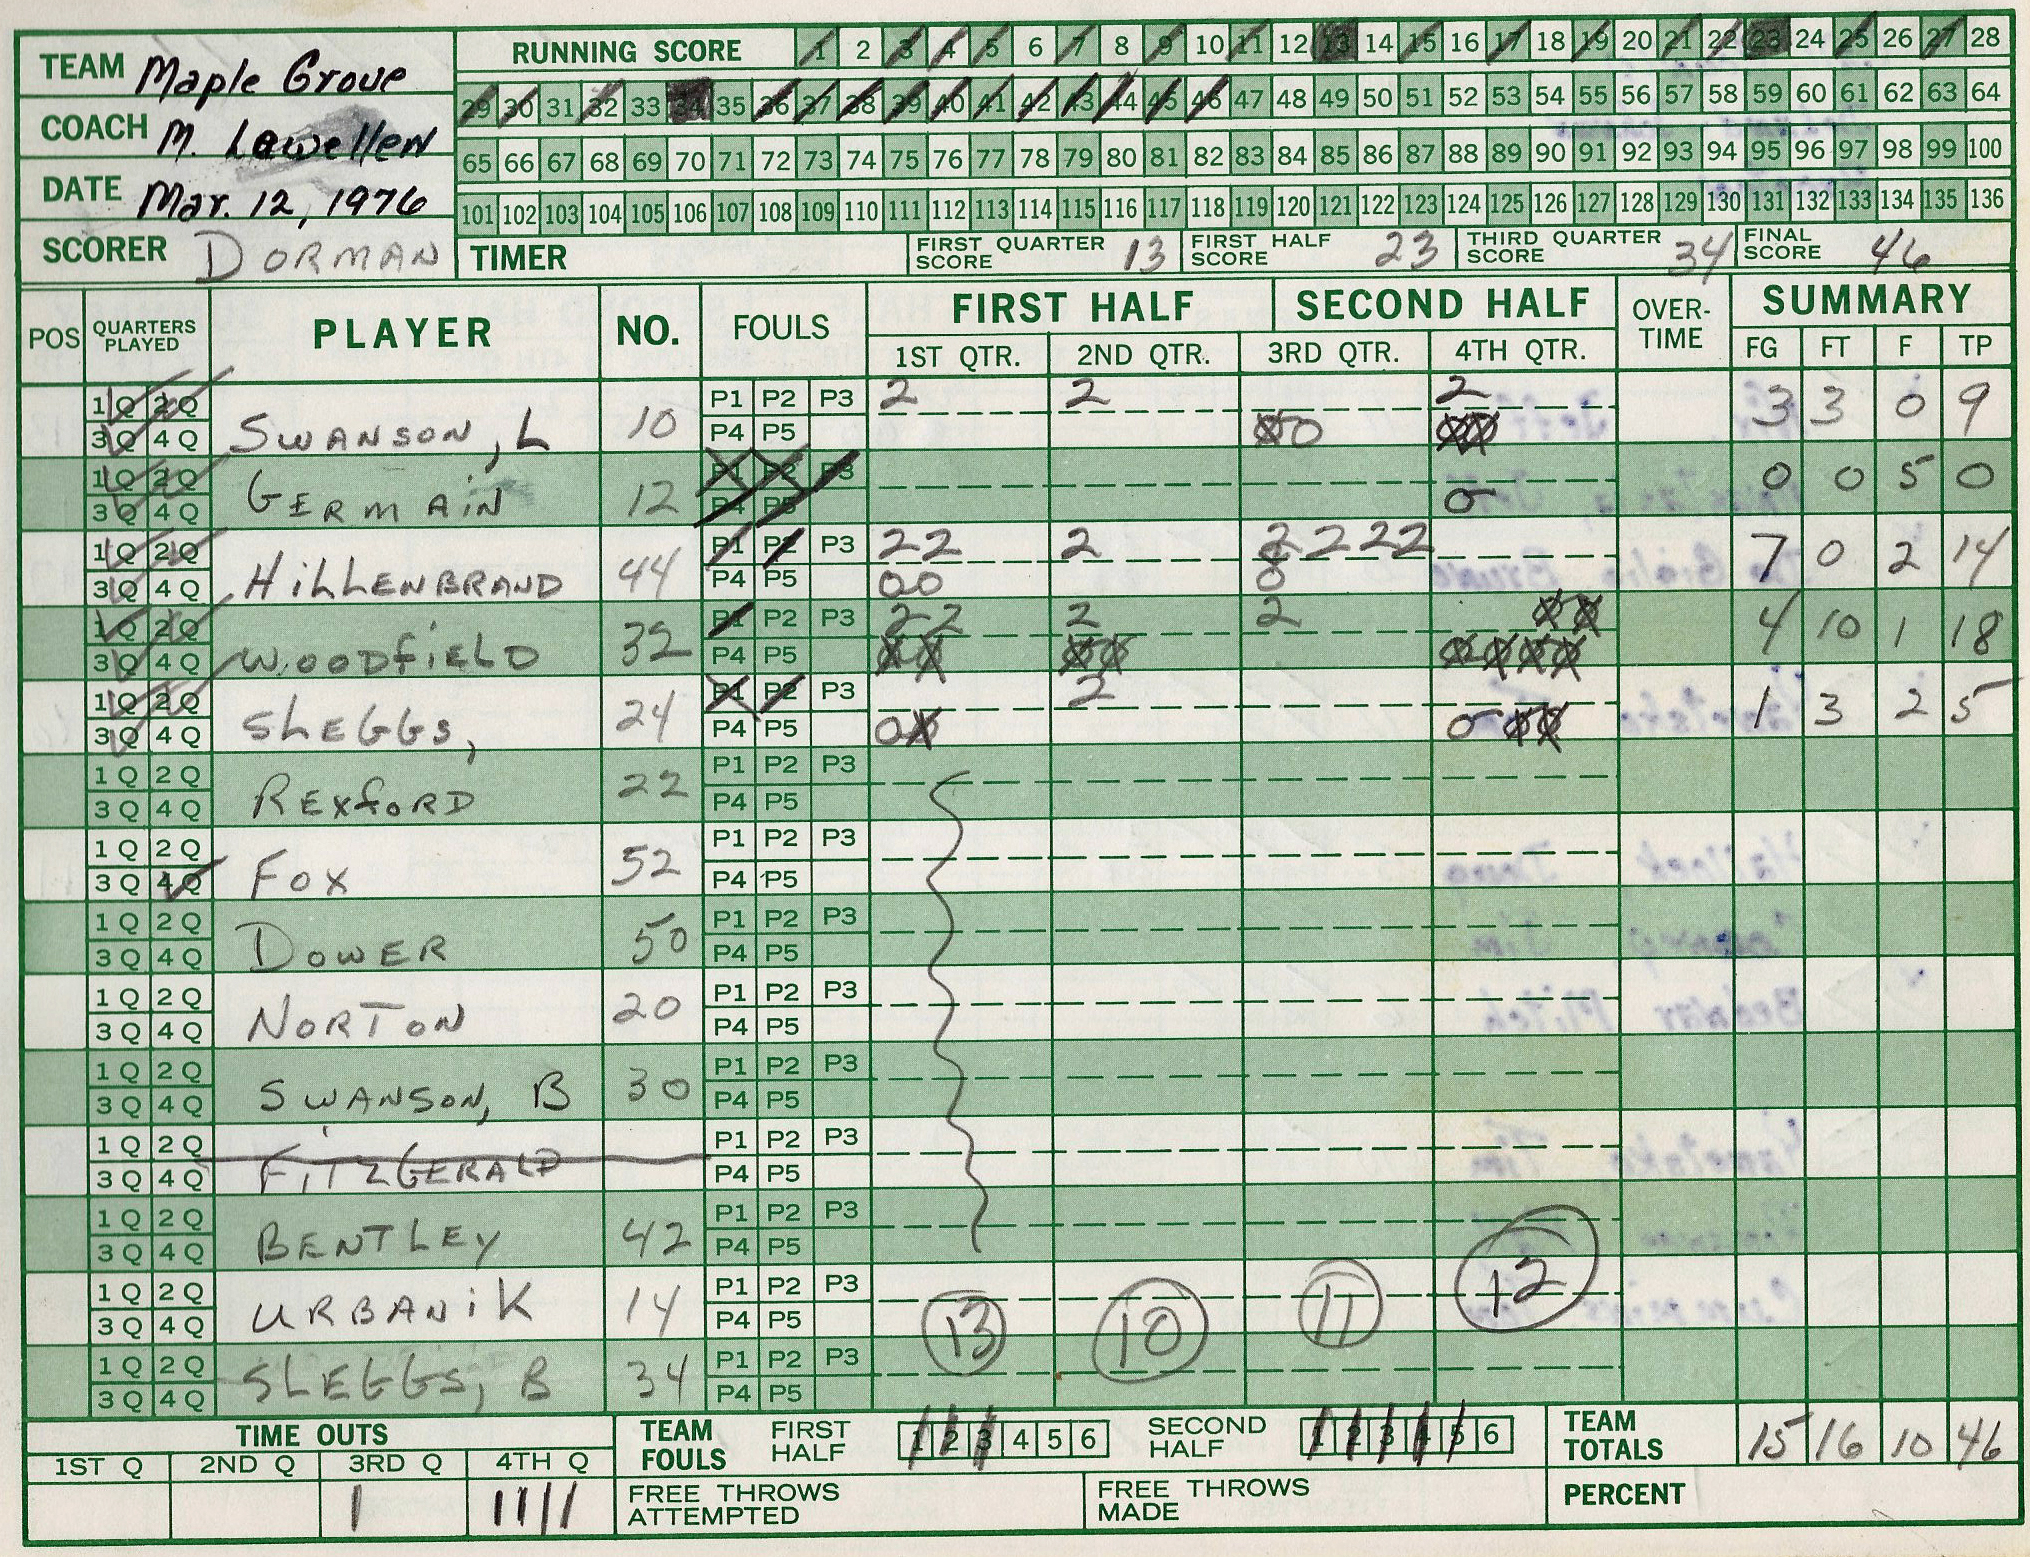 TEAM Maple Grove
COACH M. Lewellen
DATE Mar. 12, 1976
SCORER DORMAN
RUNNING SCORE 1 2 3 4 5 6 7 8 9 10 11 12 13 14 15 16 17 18 19 20 21 22 23 24 25 26 27 28
29 30 31 32 33 34 35 36 37 38 39 40 41 42 43 44 45 46 47 48 49 50 51 52 53 54 55 56 57 58 59 60 61 62 63 64
65 66 67 68 69 70 71 72 73 74 75 76 77 78 79 80 81 82 83 84 85 86 87 88 89 90 91 92 93 94 95 96 97 98 99 100
101 102 103 104 105 106 107 108 109 110 111 112 113 114 115 116 117 118 119 120 121 122 123 124 125 126 127 128 129 130 131 132 133 134 135 136
TIMER FIRST QUARTER SCORE 13 FIRST HALF SCORE 23 THIRD QUARTER SCORE 34 FINAL SCORE 46
POS QUARTERS PLAYED PLAYER NO. FOULS FIRST HALF SECOND HALF OVER-TIME SUMMARY
1ST QTR. 2ND QTR. 3RD QTR. 4TH QTR. FG FT F TP
1Q 2Q P1 P2 P3 2 2 2
3Q 4Q SWANSON, L 10 P4 P5 0 0 0 0 3 3 0 9
1Q 2Q P1 P2 P3
3Q 4Q GERMAIN 12 P4 P5 0 0 0 5 0
1Q 2Q P1 P2 P3 2 2 2 2 2 2 2
3Q 4Q HILLENBRAND 44 P4 P5 0 0 0 7 0 2 14
1Q 2Q P1 P2 P3 2 2 2 2 0 0
3Q 4Q WOODFIELD 32 P4 P5 0 0 0 0 0 0 0 0 4 10 1 18
1Q 2Q P1 P2 P3 2
3Q 4Q SLEGGS, 24 P4 P5 0 0 0 0 0 1 3 2 5
1Q 2Q P1 P2 P3
3Q 4Q REXFORD 22 P4 P5
1Q 2Q P1 P2 P3
3Q 4Q FOX 52 P4 P5
1Q 2Q P1 P2 P3
3Q 4Q DOWER 50 P4 P5
1Q 2Q P1 P2 P3
3Q 4Q NORTON 20 P4 P5
1Q 2Q P1 P2 P3
3Q 4Q SWANSON, B 30 P4 P5
1Q 2Q P1 P2 P3
3Q 4Q FITZGERALD P4 P5
1Q 2Q P1 P2 P3
3Q 4Q BENTLEY 42 P4 P5
1Q 2Q P1 P2 P3
3Q 4Q URBANIK 14 P4 P5 13 10 11 12
1Q 2Q P1 P2 P3
3Q 4Q SLEGGS, B 34 P4 P5
TIME OUTS TEAM FOULS FIRST HALF 1 2 3 4 5 6 SECOND HALF 1 2 3 4 5 6 TEAM TOTALS 15 16 10 46
1ST Q 2ND Q 3RD Q 4TH Q
I IIII FREE THROWS ATTEMPTED FREE THROWS MADE PERCENT